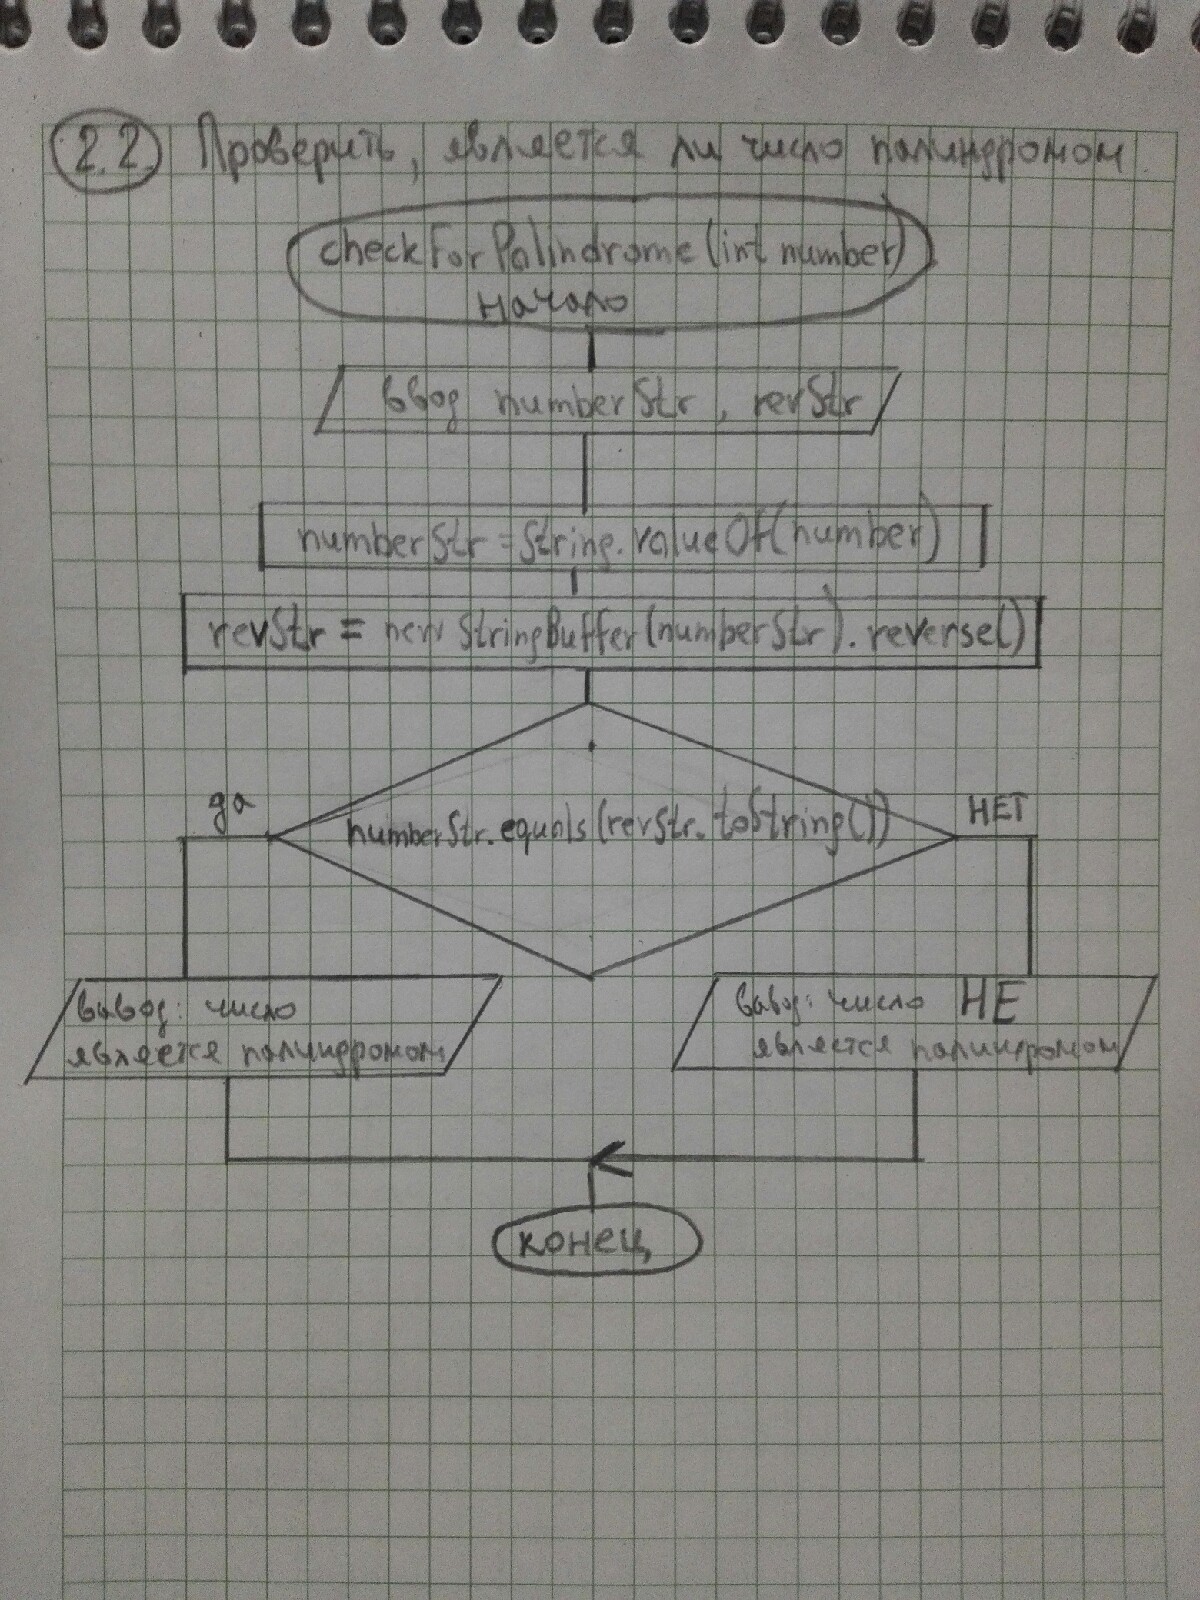 2.2. Проверить, является ли число палиндромом.
checkForPalindrome(int number)
начало
ввод numberStr, revStr
numberStr = String.valueOf(number)
revStr = new StringBuffer(numberStr).reverse()
да
numberStr.equals(revStr.toString())
НЕТ
вывод: число
является палиндромом
вывод: число НЕ
является палиндромом
конец